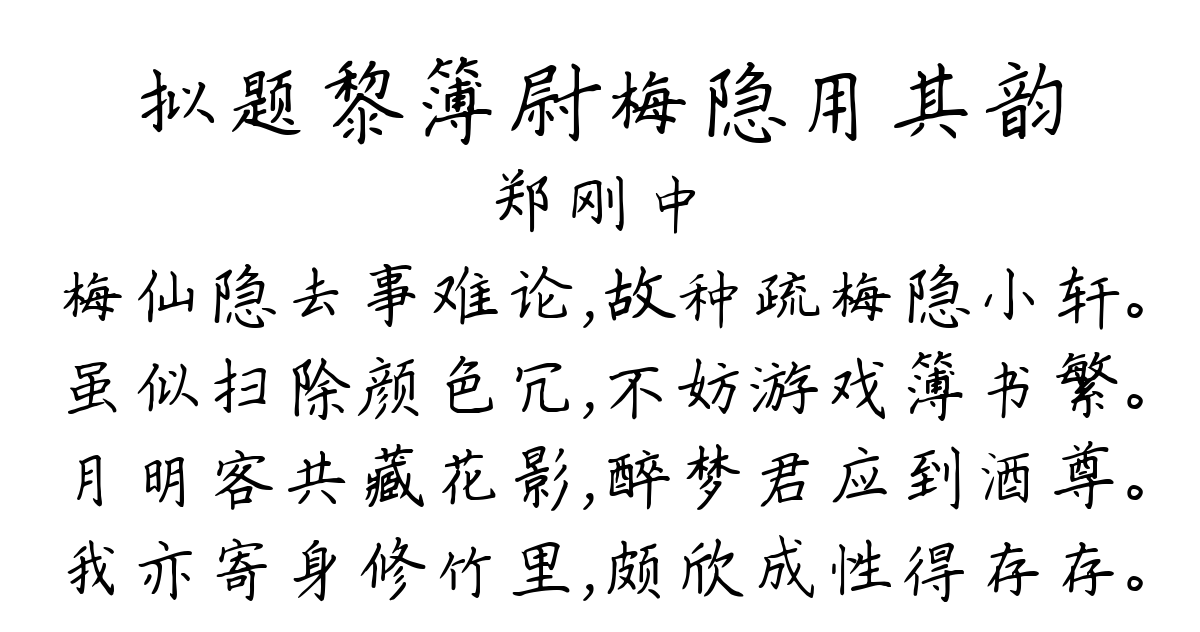 拟题黎簿尉梅隐用其韵
郑刚中
梅仙隐去事难论,故种疏梅隐小轩。
虽似扫除颜色冗,不妨游戏簿书繁。
月明客共藏花影,醉梦君应到酒尊。
我亦寄身修竹里,颇欣成性得存存。